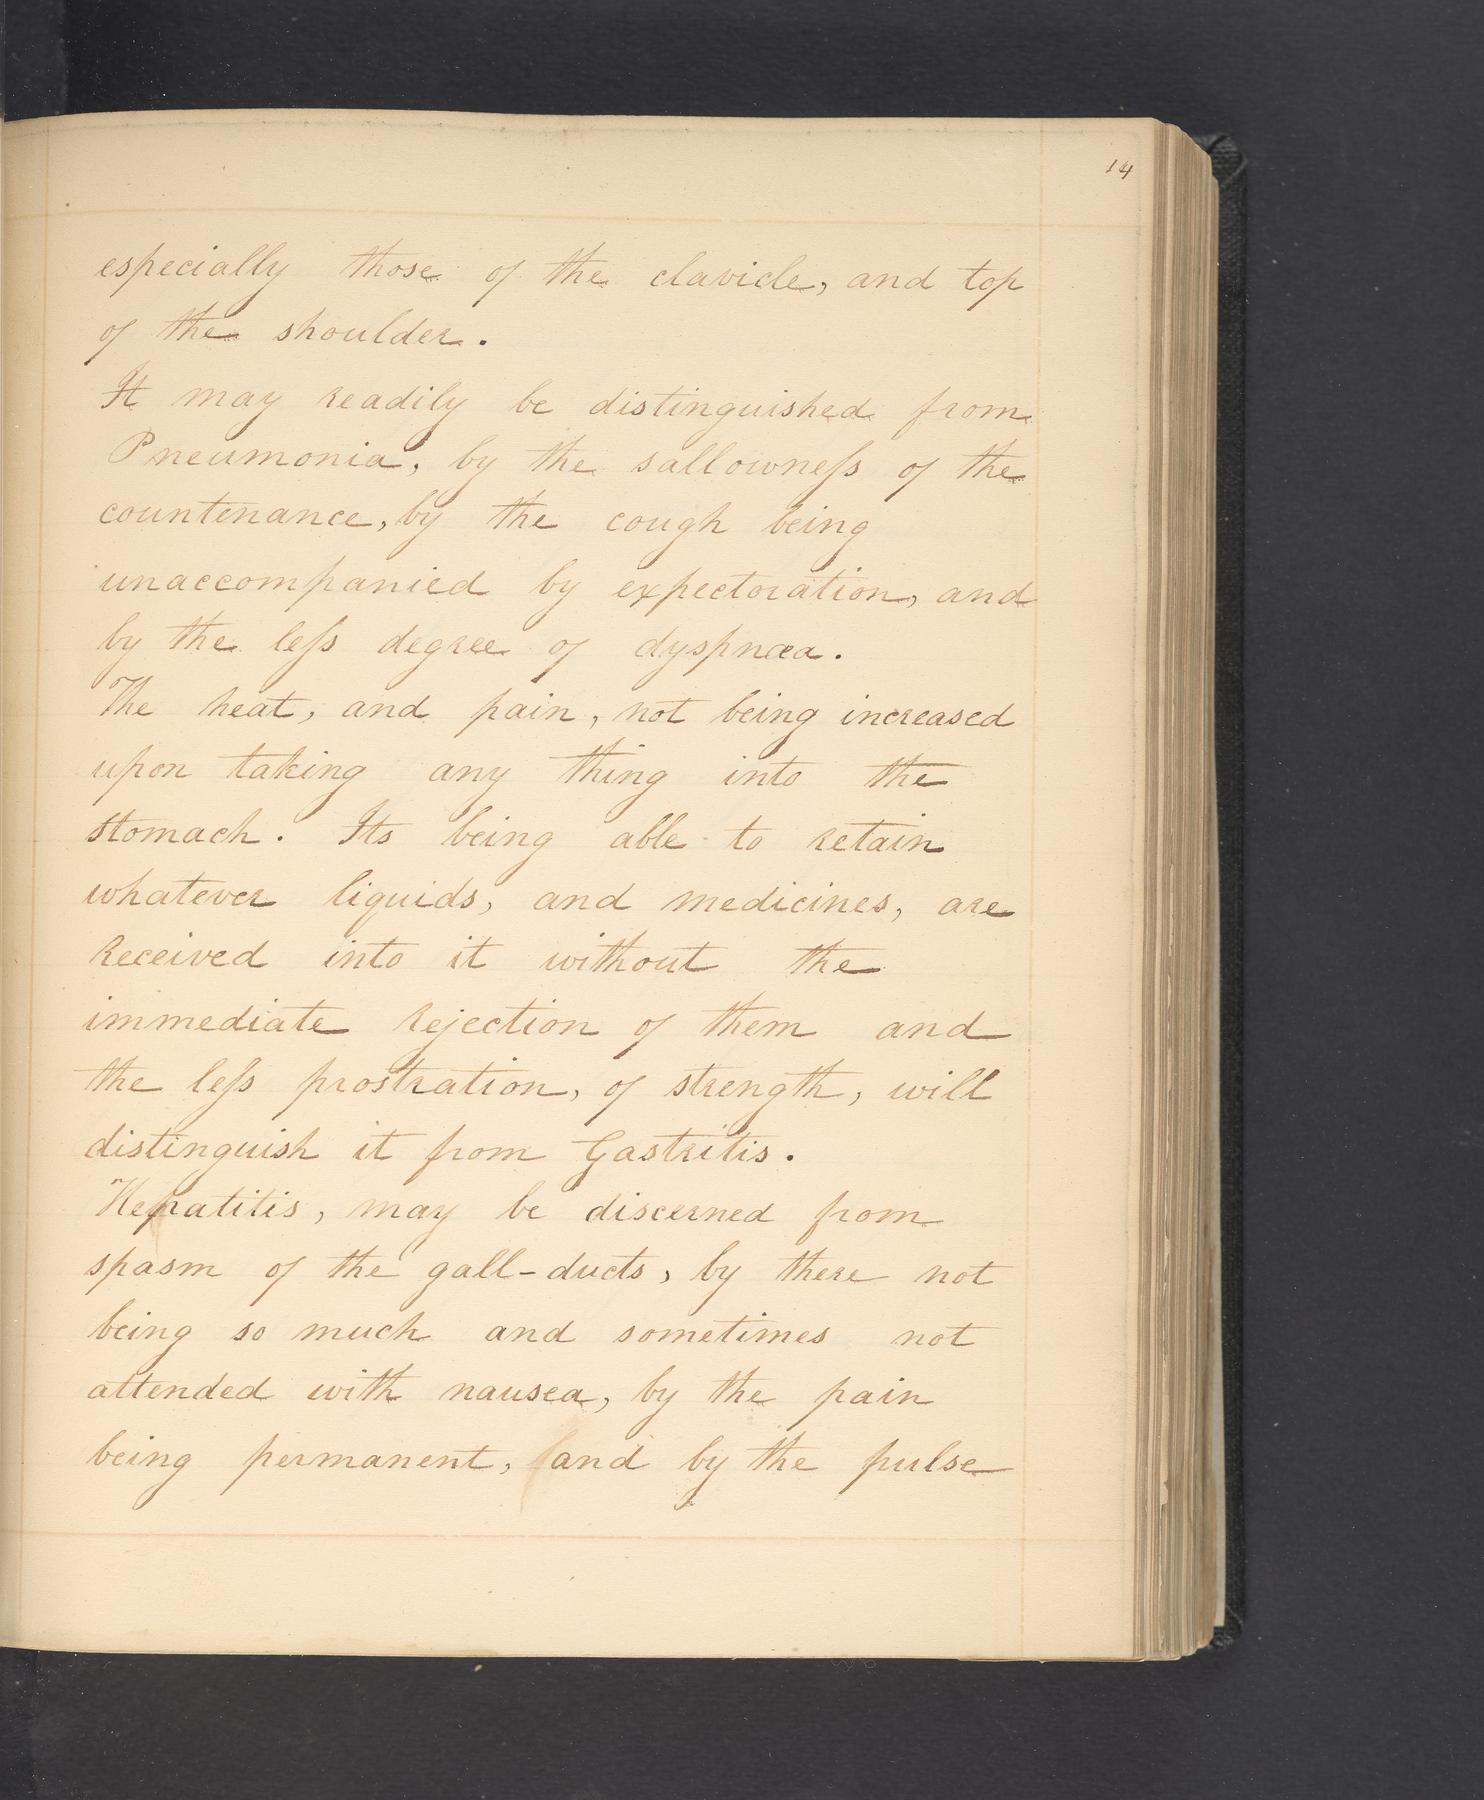 14
especially those of the clavicle, and top
of the shoulder.
It may readily be distinguished from
Pneumonia, by the sallowneſs of the
countenance, by the cough being
unaccompanied by expectoration, and
by the leſs degree of dyspnæa.
The heat, and pain, not being increased
upon taking any thing into the
stomach. Its being able to retain
whatever liquids, and medicines, are
received into it without the
immediate rejection of them and
the leſs prostration, of strength, will
distinguish it from Gastritis.
Hepatitis, may be discerned from
spasm of the gall-ducts, by there not
being so much and sometimes not
attended with nausea, by the pain
being permanent, and by the pulse